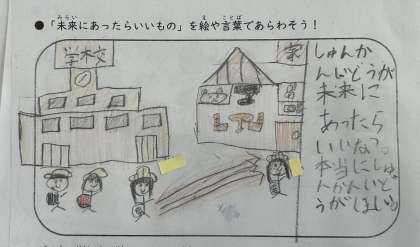 ●「未来にあったらいいもの」を絵や言葉であらわそう!
学校
家
しゅんか
んいどうが
未来に
あったら
いいな。
本当にしゅ
んかんいど
うがほしい。